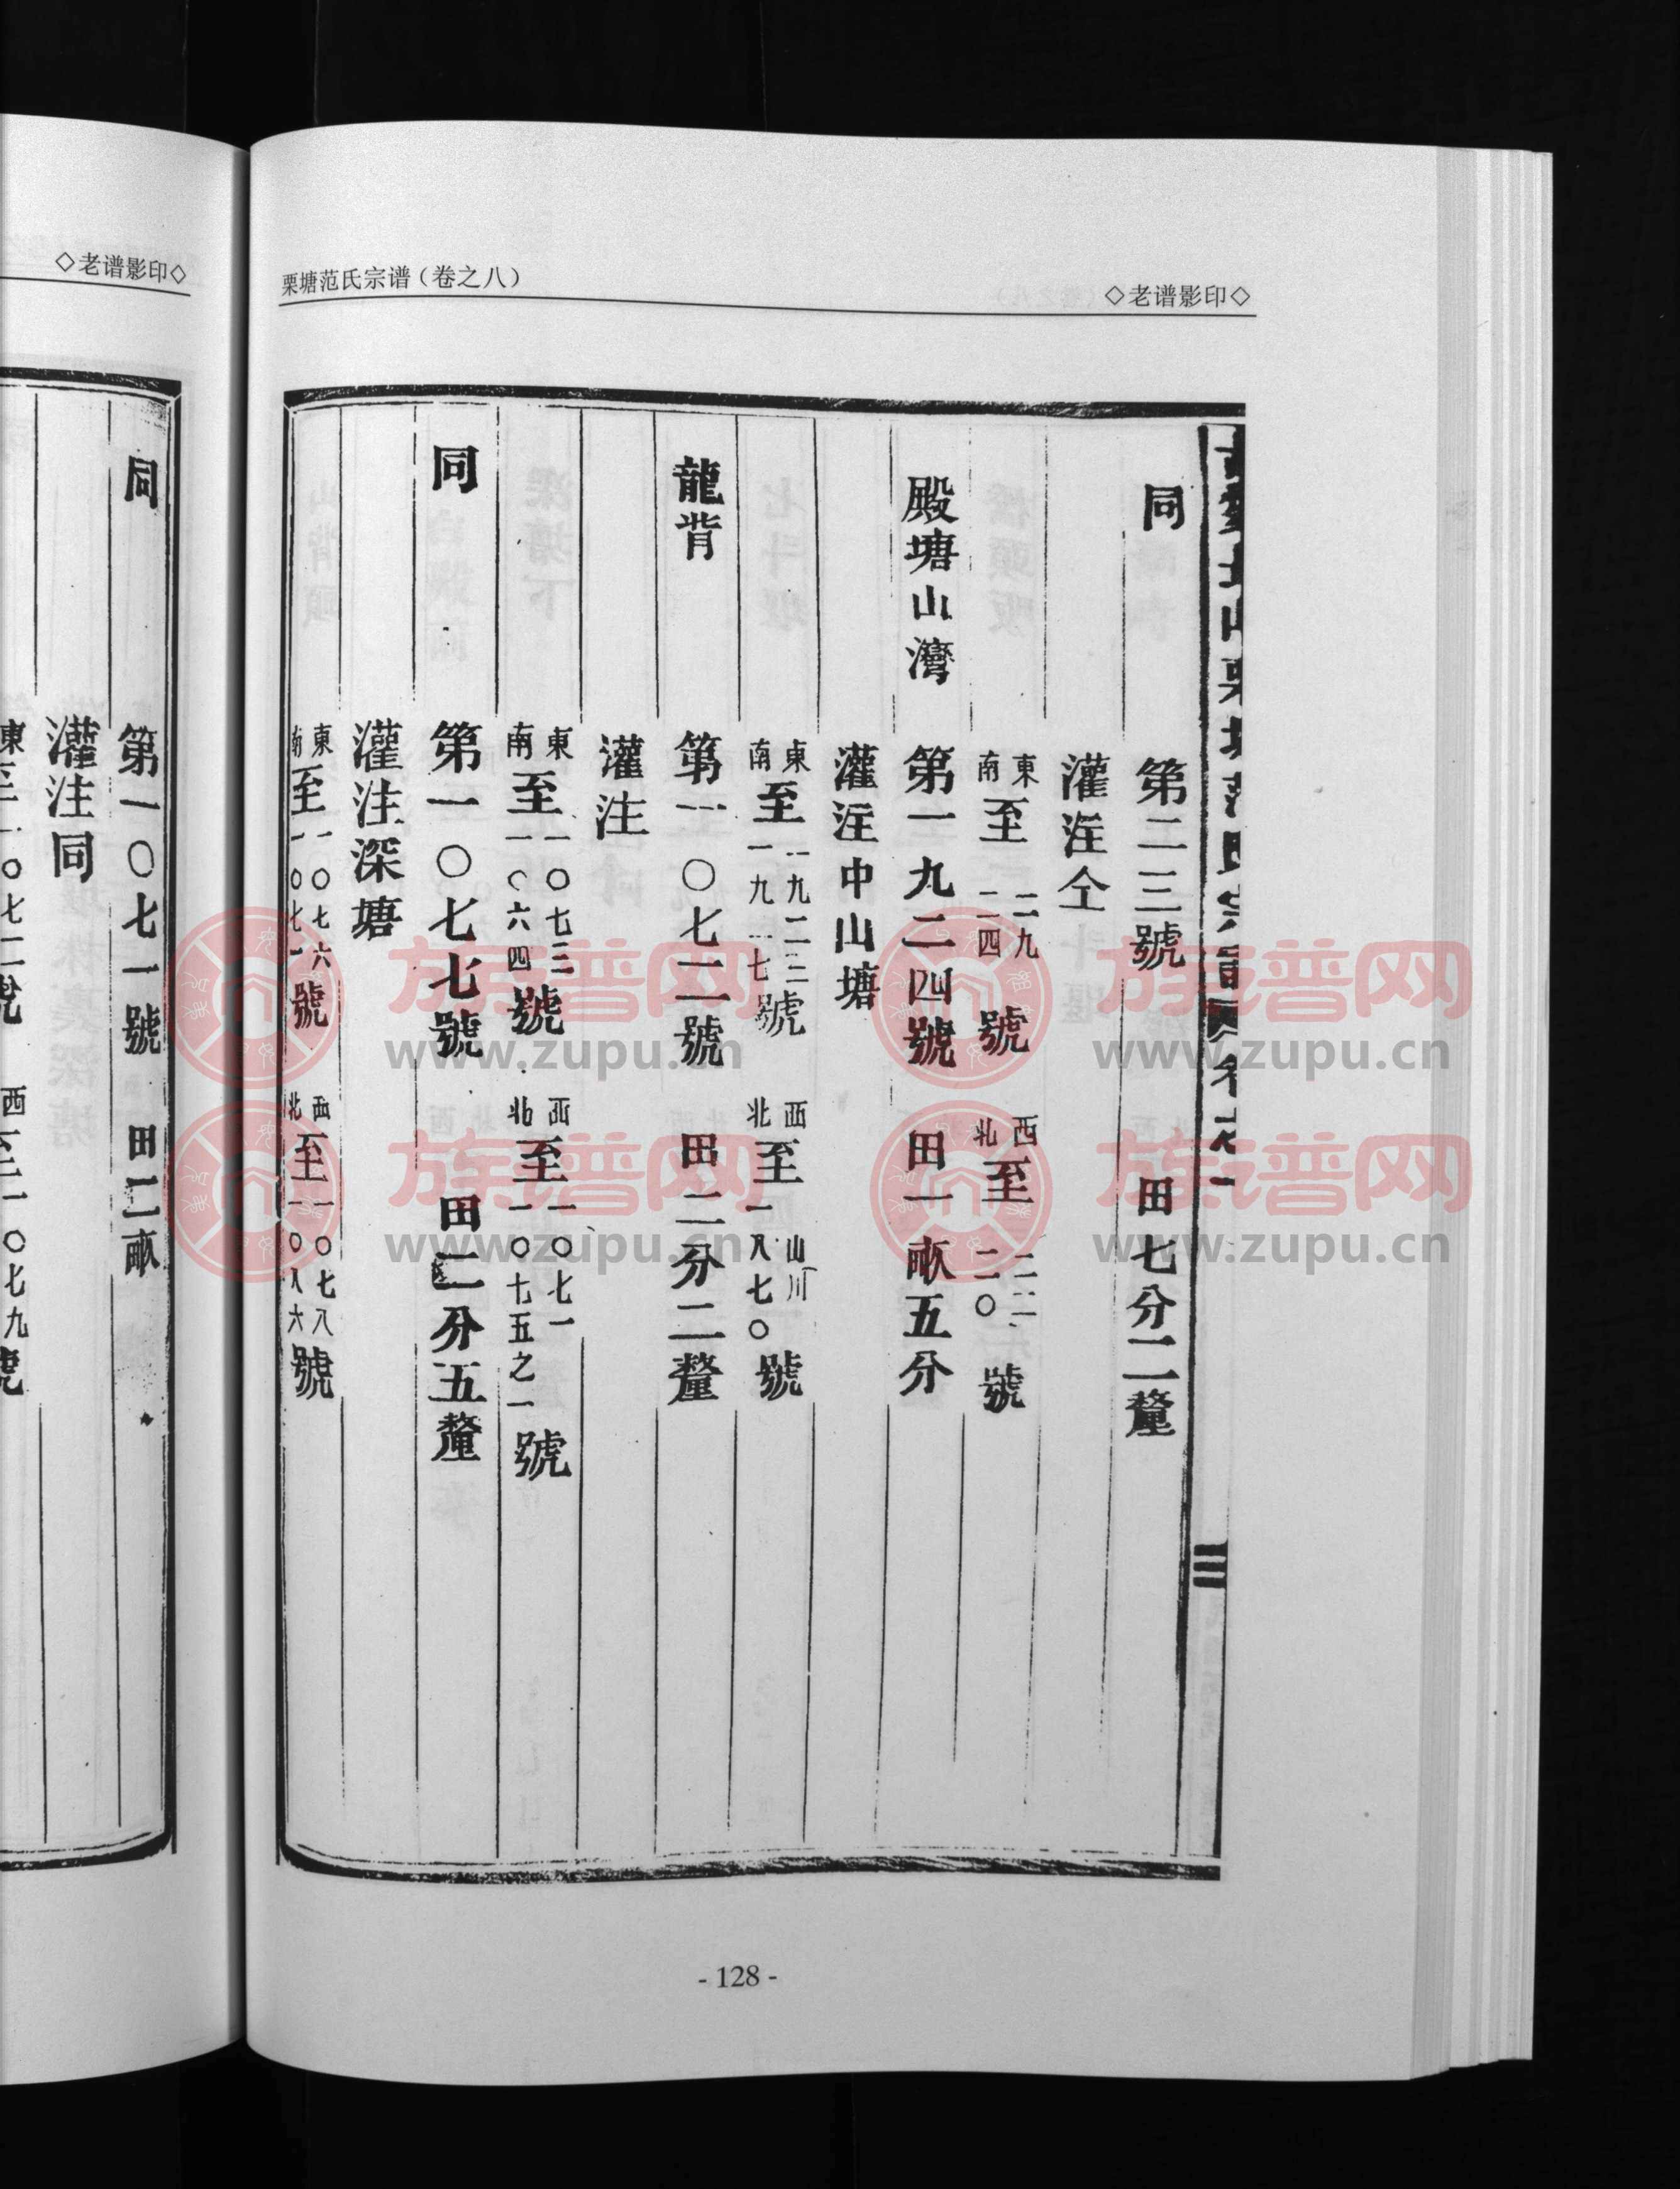 栗塘范氏宗谱（卷之八）
◇老谱影印◇
三
同　第二三號　田七分二釐
灌注仝
東南至二九二四號　西北至二二二〇號
殿塘山灣　第一九二四號　田一畝五分
灌注中山塘
東南至一九二三一九一七號　西北至山川一八七〇號
龍背　第一〇七二號　田二分二釐
灌注
東南至一〇七三一〇六四號　西北至一〇七一一〇七五之一號
同　第一〇七七號　田二分五釐
灌注深塘
東南至一〇七六一〇七一號　西北至一〇七八一〇八六號
- 128 -
◇老谱影印◇
同　第一〇七一號　田二畝
灌注同
東至一〇七二號　西至一〇七九號
族谱网
www.zupu.cn
族谱网
www.zupu.cn
族谱网
www.zupu.cn
族谱网
www.zupu.cn